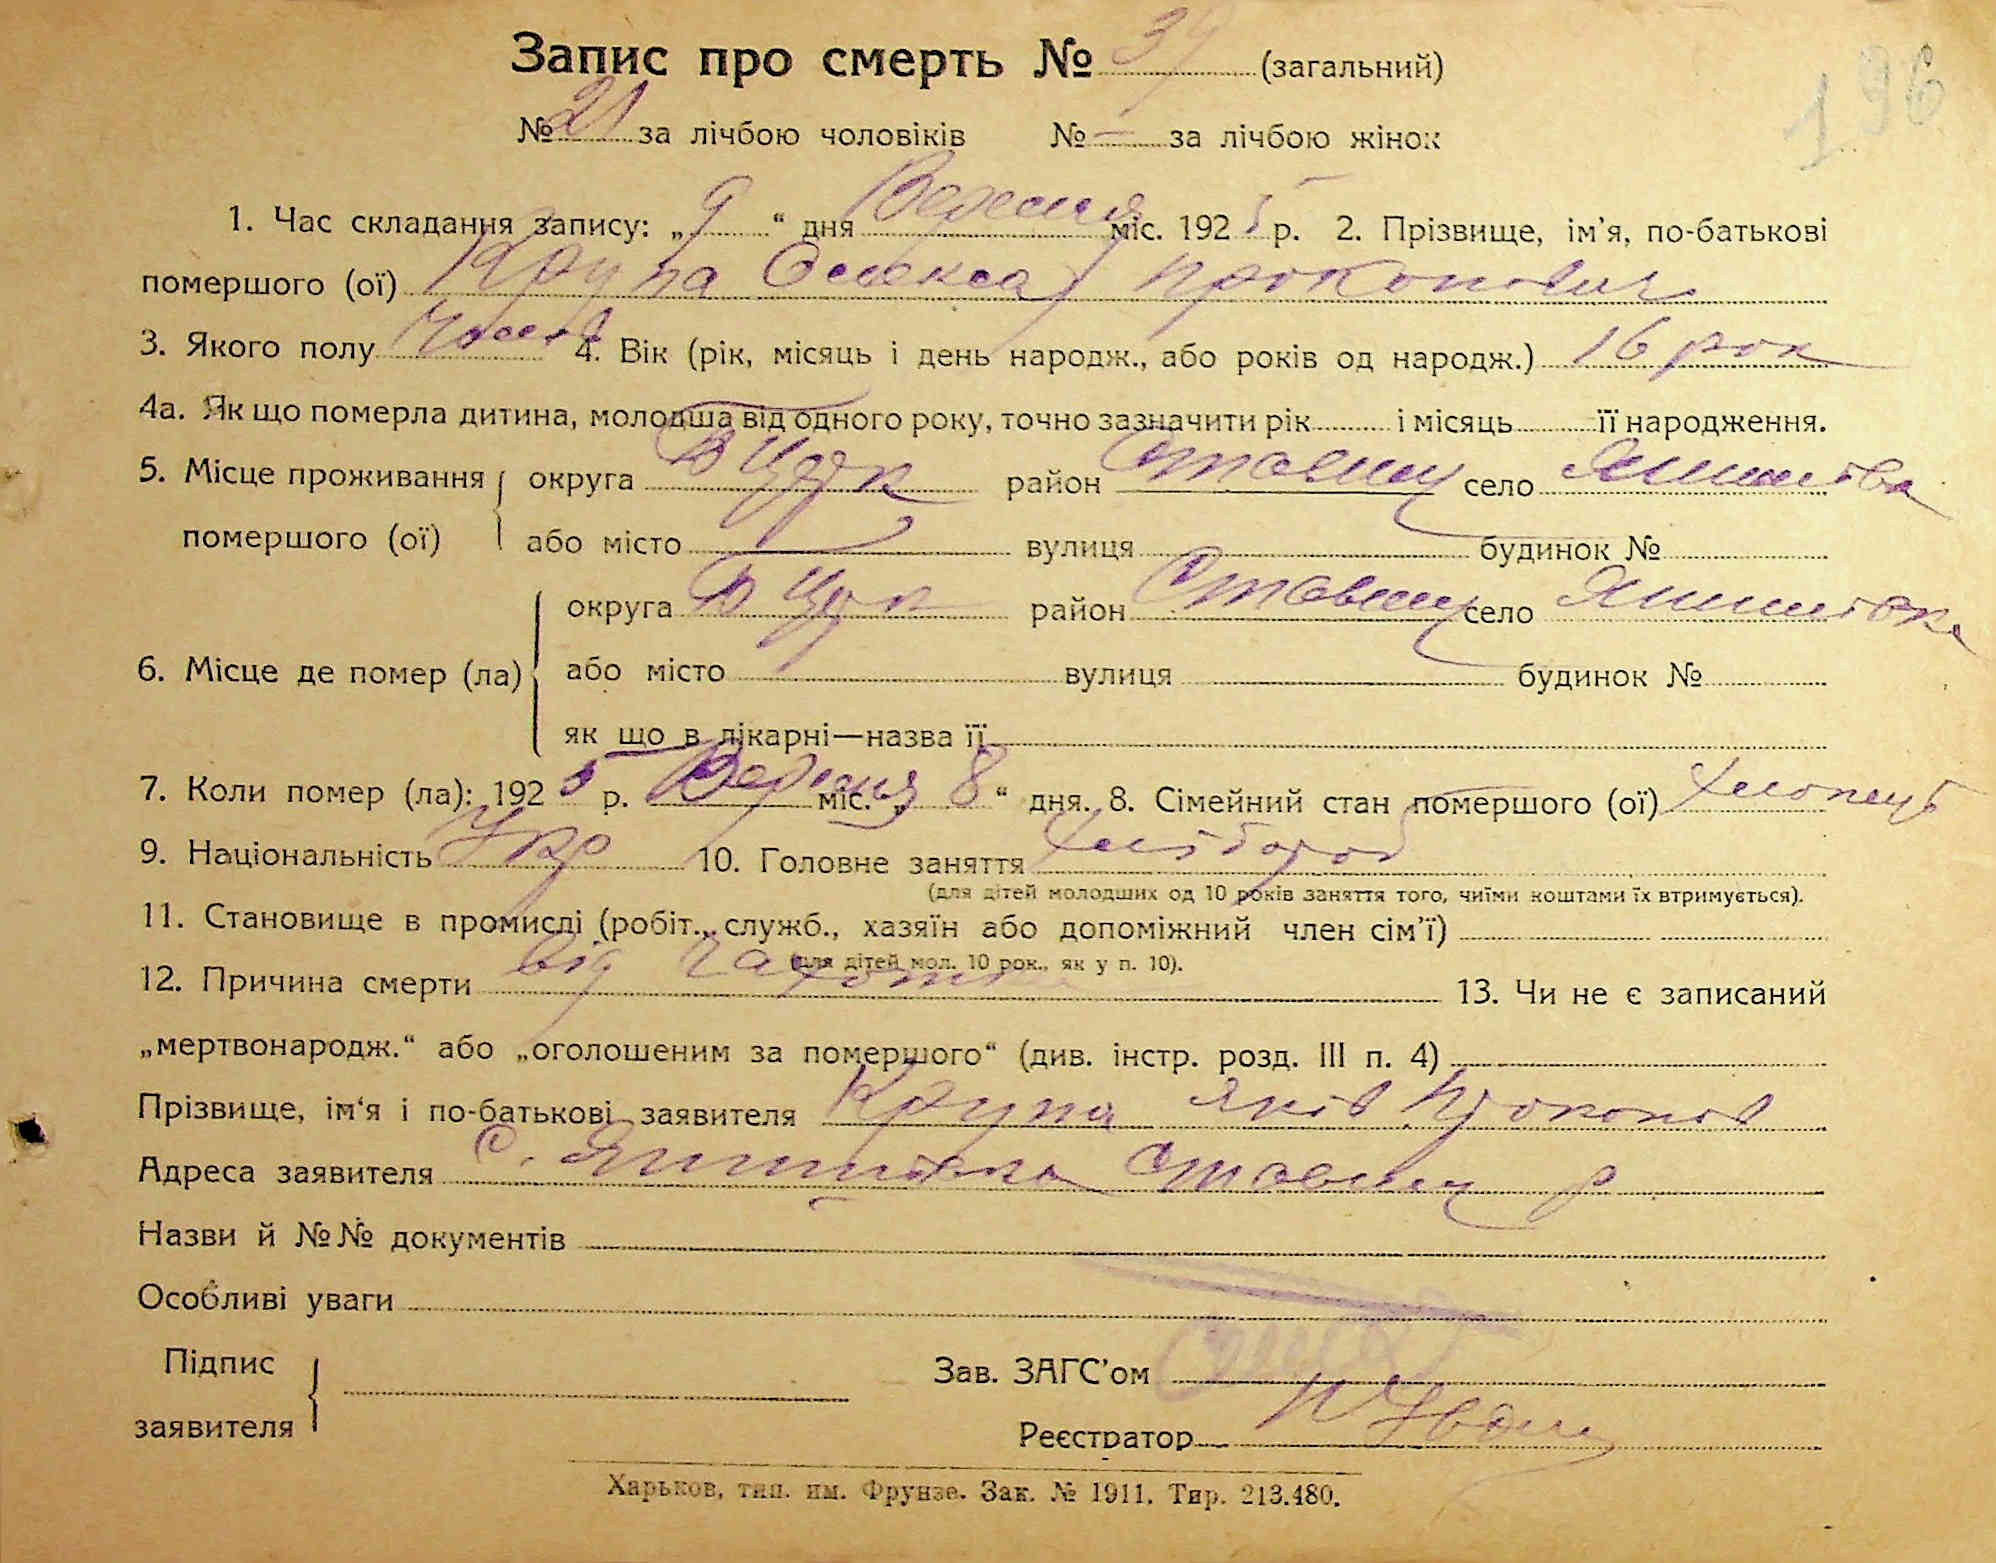 196
Запис про смерть № 39 (загальний)
№ 21 за лічбою чоловіків № — за лічбою жінок
1. Час складання запису: „ 9 “ дня Вересня міс. 1925 р. 2. Прізвище, ім'я, по-батькові
помершого (ої) Крупа Олекса Прокопович
3. Якого полу Чолов 4. Вік (рік, місяць і день народж., або років од народж.) 16 рок
4а. Як що померла дитина, молодша від одного року, точно зазначити рік і місяць її народження.
5. Місце проживання округа Б Церк район Ставищ село Янишівка
помершого (ої) або місто вулиця будинок №
округа Б Церк район Ставищ село Янишівка
6. Місце де помер (ла) або місто вулиця будинок №
як що в лікарні—назва її
7. Коли помер (ла): 1925 р. Вересня міс. „ 8 “ дня. 8. Сімейний стан помершого (ої) Хлопець
9. Національність Укр 10. Головне заняття Хлібороб
(для дітей молодших од 10 років заняття того, чиїми коштами їх втримується).
11. Становище в промислі (робіт., служб., хазяїн або допоміжний член сім'ї)
(для дітей мол. 10 рок., як у п. 10).
12. Причина смерти від Чахотки 13. Чи не є записаний
„мертвонародж.“ або „оголошеним за помершого“ (див. інстр. розд. III п. 4)
Прізвище, ім'я і по-батькові заявителя Крупа Яків Прокопов
Адреса заявителя с. Янишівка Ставищ р
Назви й №№ документів
Особливі уваги
Підпис Зав. ЗАГС'ом
заявителя Реєстратор
Харьков, тип. им. Фрунзе. Зак. № 1911. Тир. 213.480.